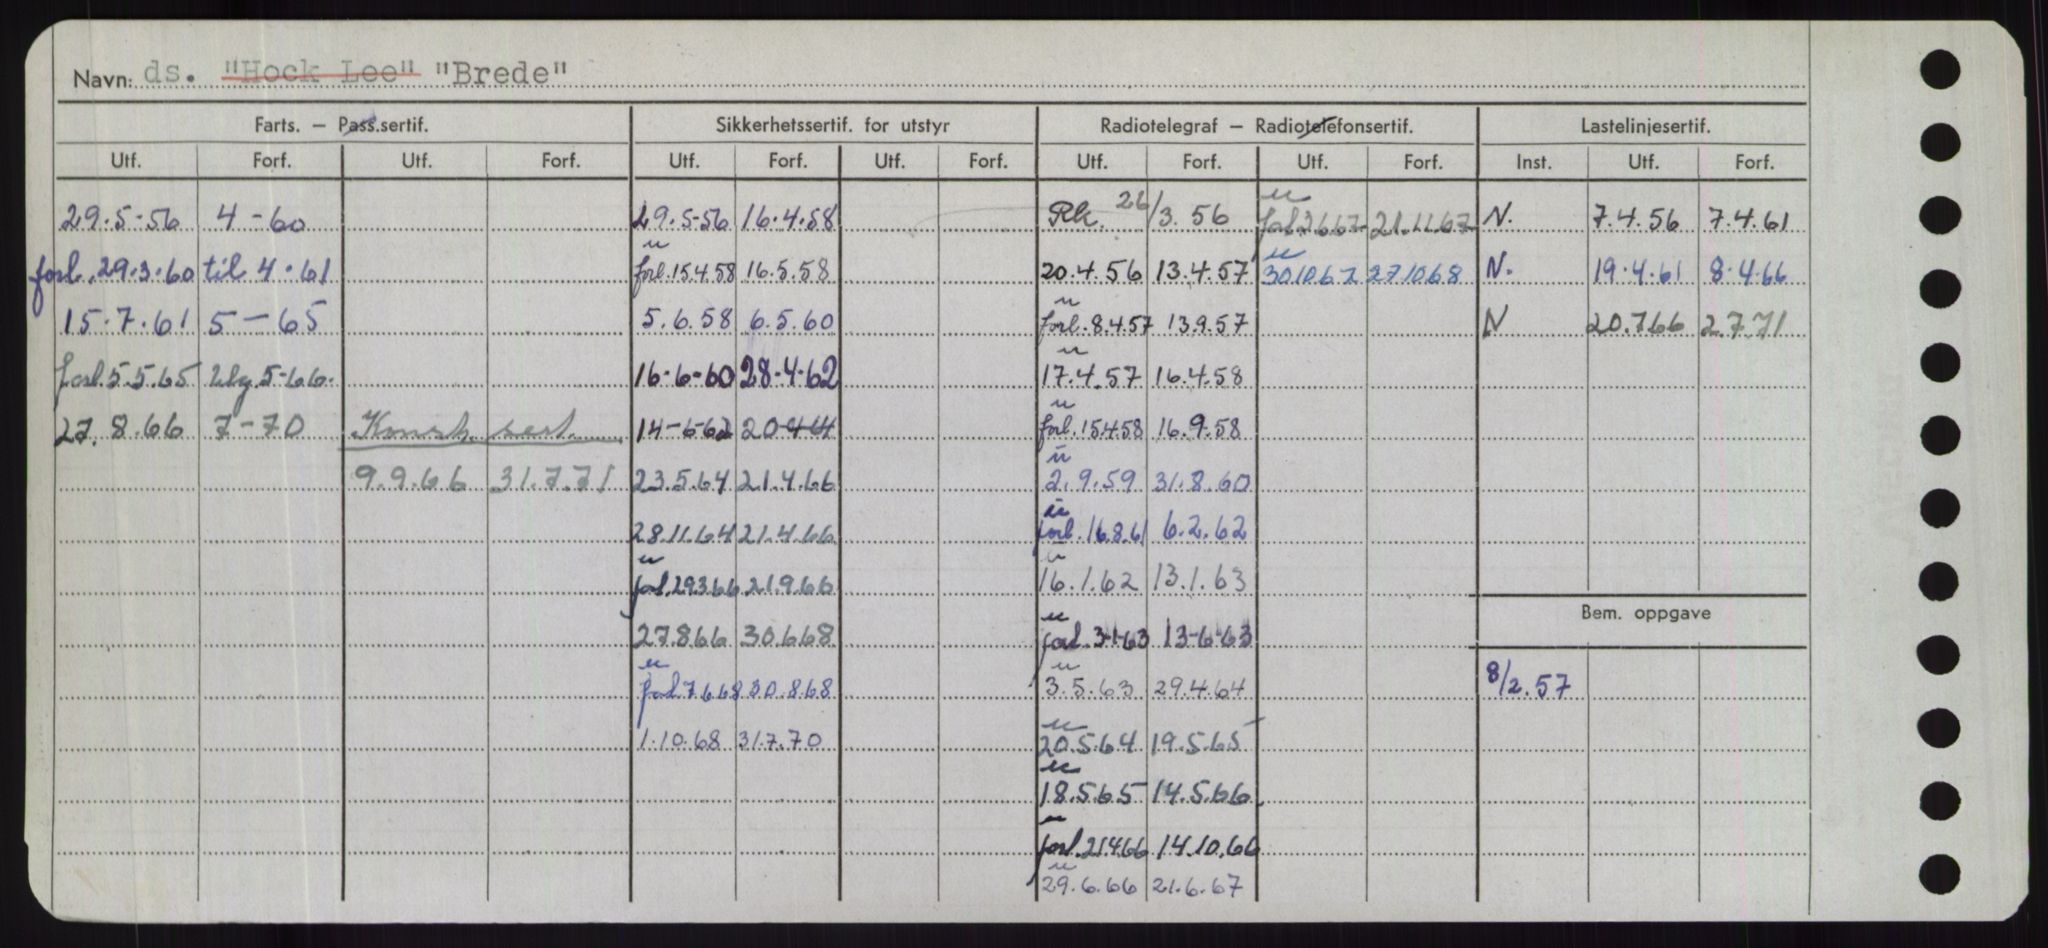 Navn: ds. "Hock Lee" "Brede"
Farts. – Pass.sertif. Sikkerhetssertif. for utstyr Radiotelegraf – Radiotelefonsertif. Lastelinjesertif.
Utf. Forf. Utf. Forf. Utf. Forf. Utf. Forf. Utf. Forf. Utf. Forf. Inst. Utf. Forf.
29.5-56 4-60 29.5-56 16.4.58 Rk. 26/3. 56 forl.2667 21.11.67 N. 7.4.56 7.4.61
forl. 29.3.60 til 4.61 forl.15.4.58 16.5.58 20.4.56 13.4.57 30.10.67 27.10.68 N. 19.4.61 8.4.66
15.7.61 5-65 5.6.58 6.5.60 forl. 8.4.57 13.9.57 N 20.7.66 2.7.71
forl.5.5.65 5-66. 16-6-60 28-4-62 17.4.57 16.4.58
27.8.66 7-70 Konstr. sert. 14-6-62 20-4-64 forl.15.4.58 16.9.58
9.9.66 31.7.71 23.5.64 21.4.66 2.9.59 31.8.60
28.11.64 21.4.66 forl.16.8.61 6.2.62
forl.29.3.66 21.9.66 16.1.62 13.1.63
27.8.66 30.6.68 forl.3-1-63 13-6-63
Bem. oppgave
forl.7.6.68 30.8.68 3.5.63 29.4.64 8/2.57
1.10.68 31.7.70 20.5.64 19.5.65
18.5.65 14.5.66
forl.21.4.66 14.10.66
29.6.66 21.6.67